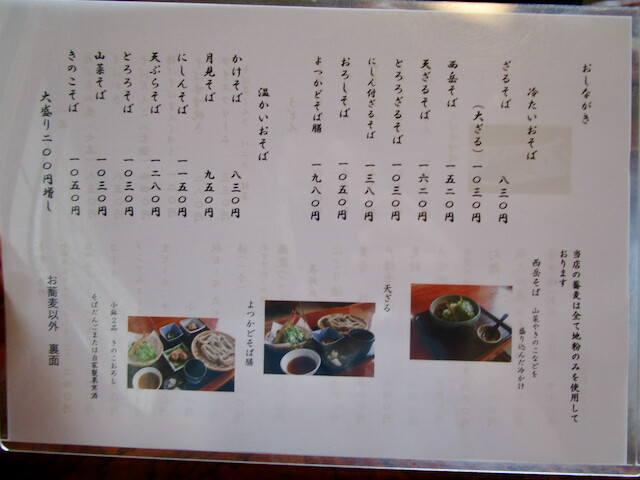 おしながき
冷たいおそば
ざるそば 八三〇円
(大ざる) 一〇三〇円
西岳そば 一五二〇円
天ざるそば 一六二〇円
とろろざるそば 一〇三〇円
にしん付ざるそば 一三八〇円
おろしそば 一〇五〇円
よつかどそば膳 一九八〇円
温かいおそば
かけそば 八三〇円
月見そば 九五〇円
にしんそば 一一五〇円
天ぷらそば 一二八〇円
とろろそば 一〇三〇円
山菜そば 一〇三〇円
きのこそば 一〇五〇円
大盛り二〇〇円増し
当店の蕎麦は全て地粉のみを使用して
おります
西岳そば 山菜やきのこなどを
盛り込んだ冷かけ
天ざる
よつかどそば膳
小鉢2品 きのこおろし
そばだんごまたは自家製果実酒
お蕎麦以外 裏面